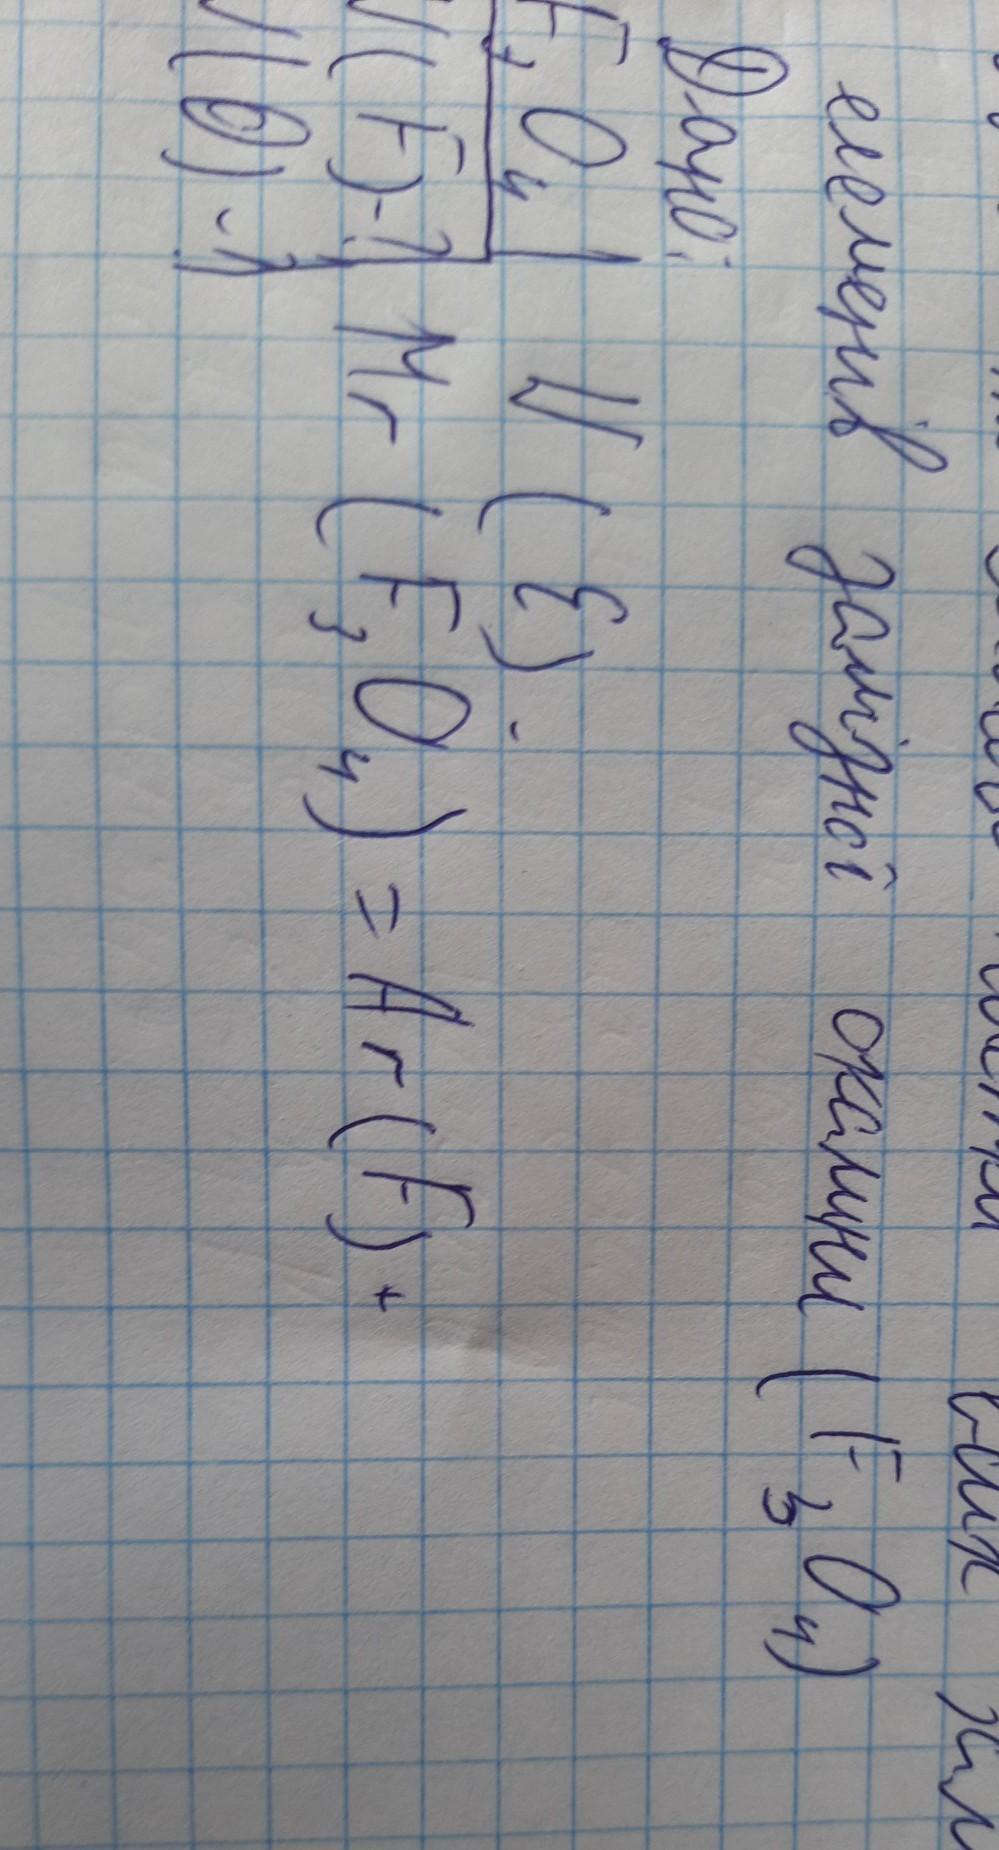 елементів залізної окалини (F₃O₄)
Дано:
F₃O₄ W (E) -
W (F) - ?
Mr (F₃O₄) = Ar (F) +
W (O) - ?